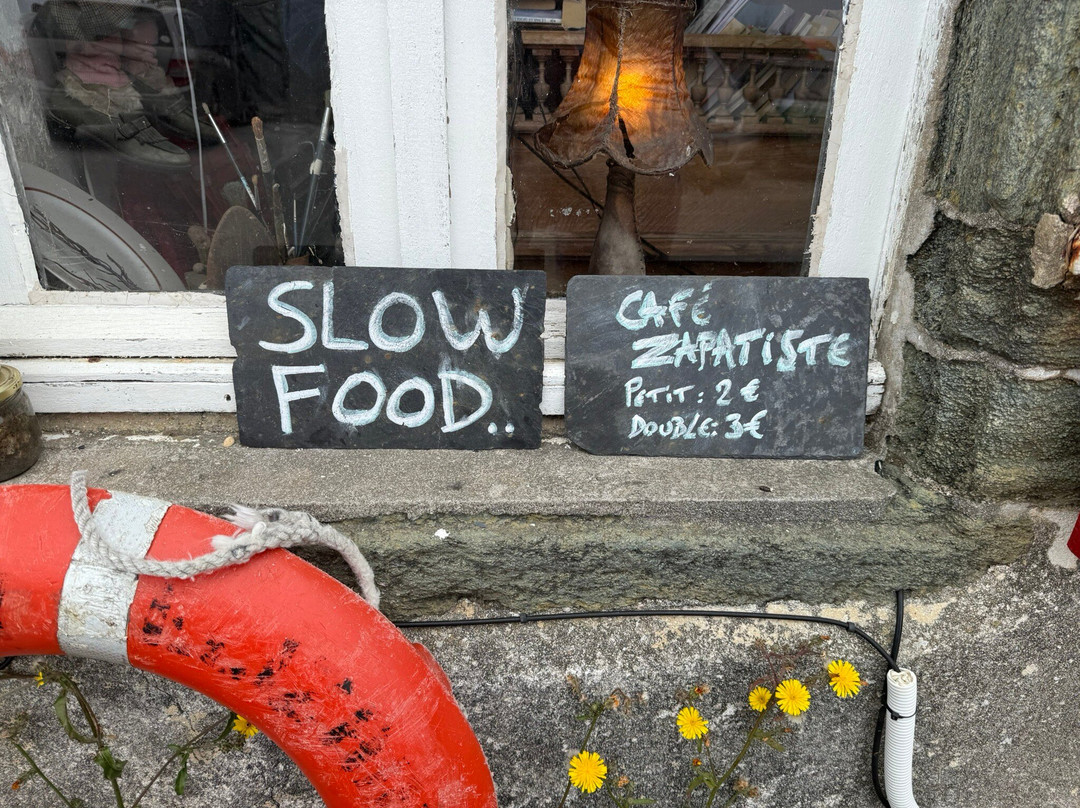 SLOW
FOOD..
CAFÉ
ZAPATISTE
PETIT: 2 €
DOUBLE: 3€